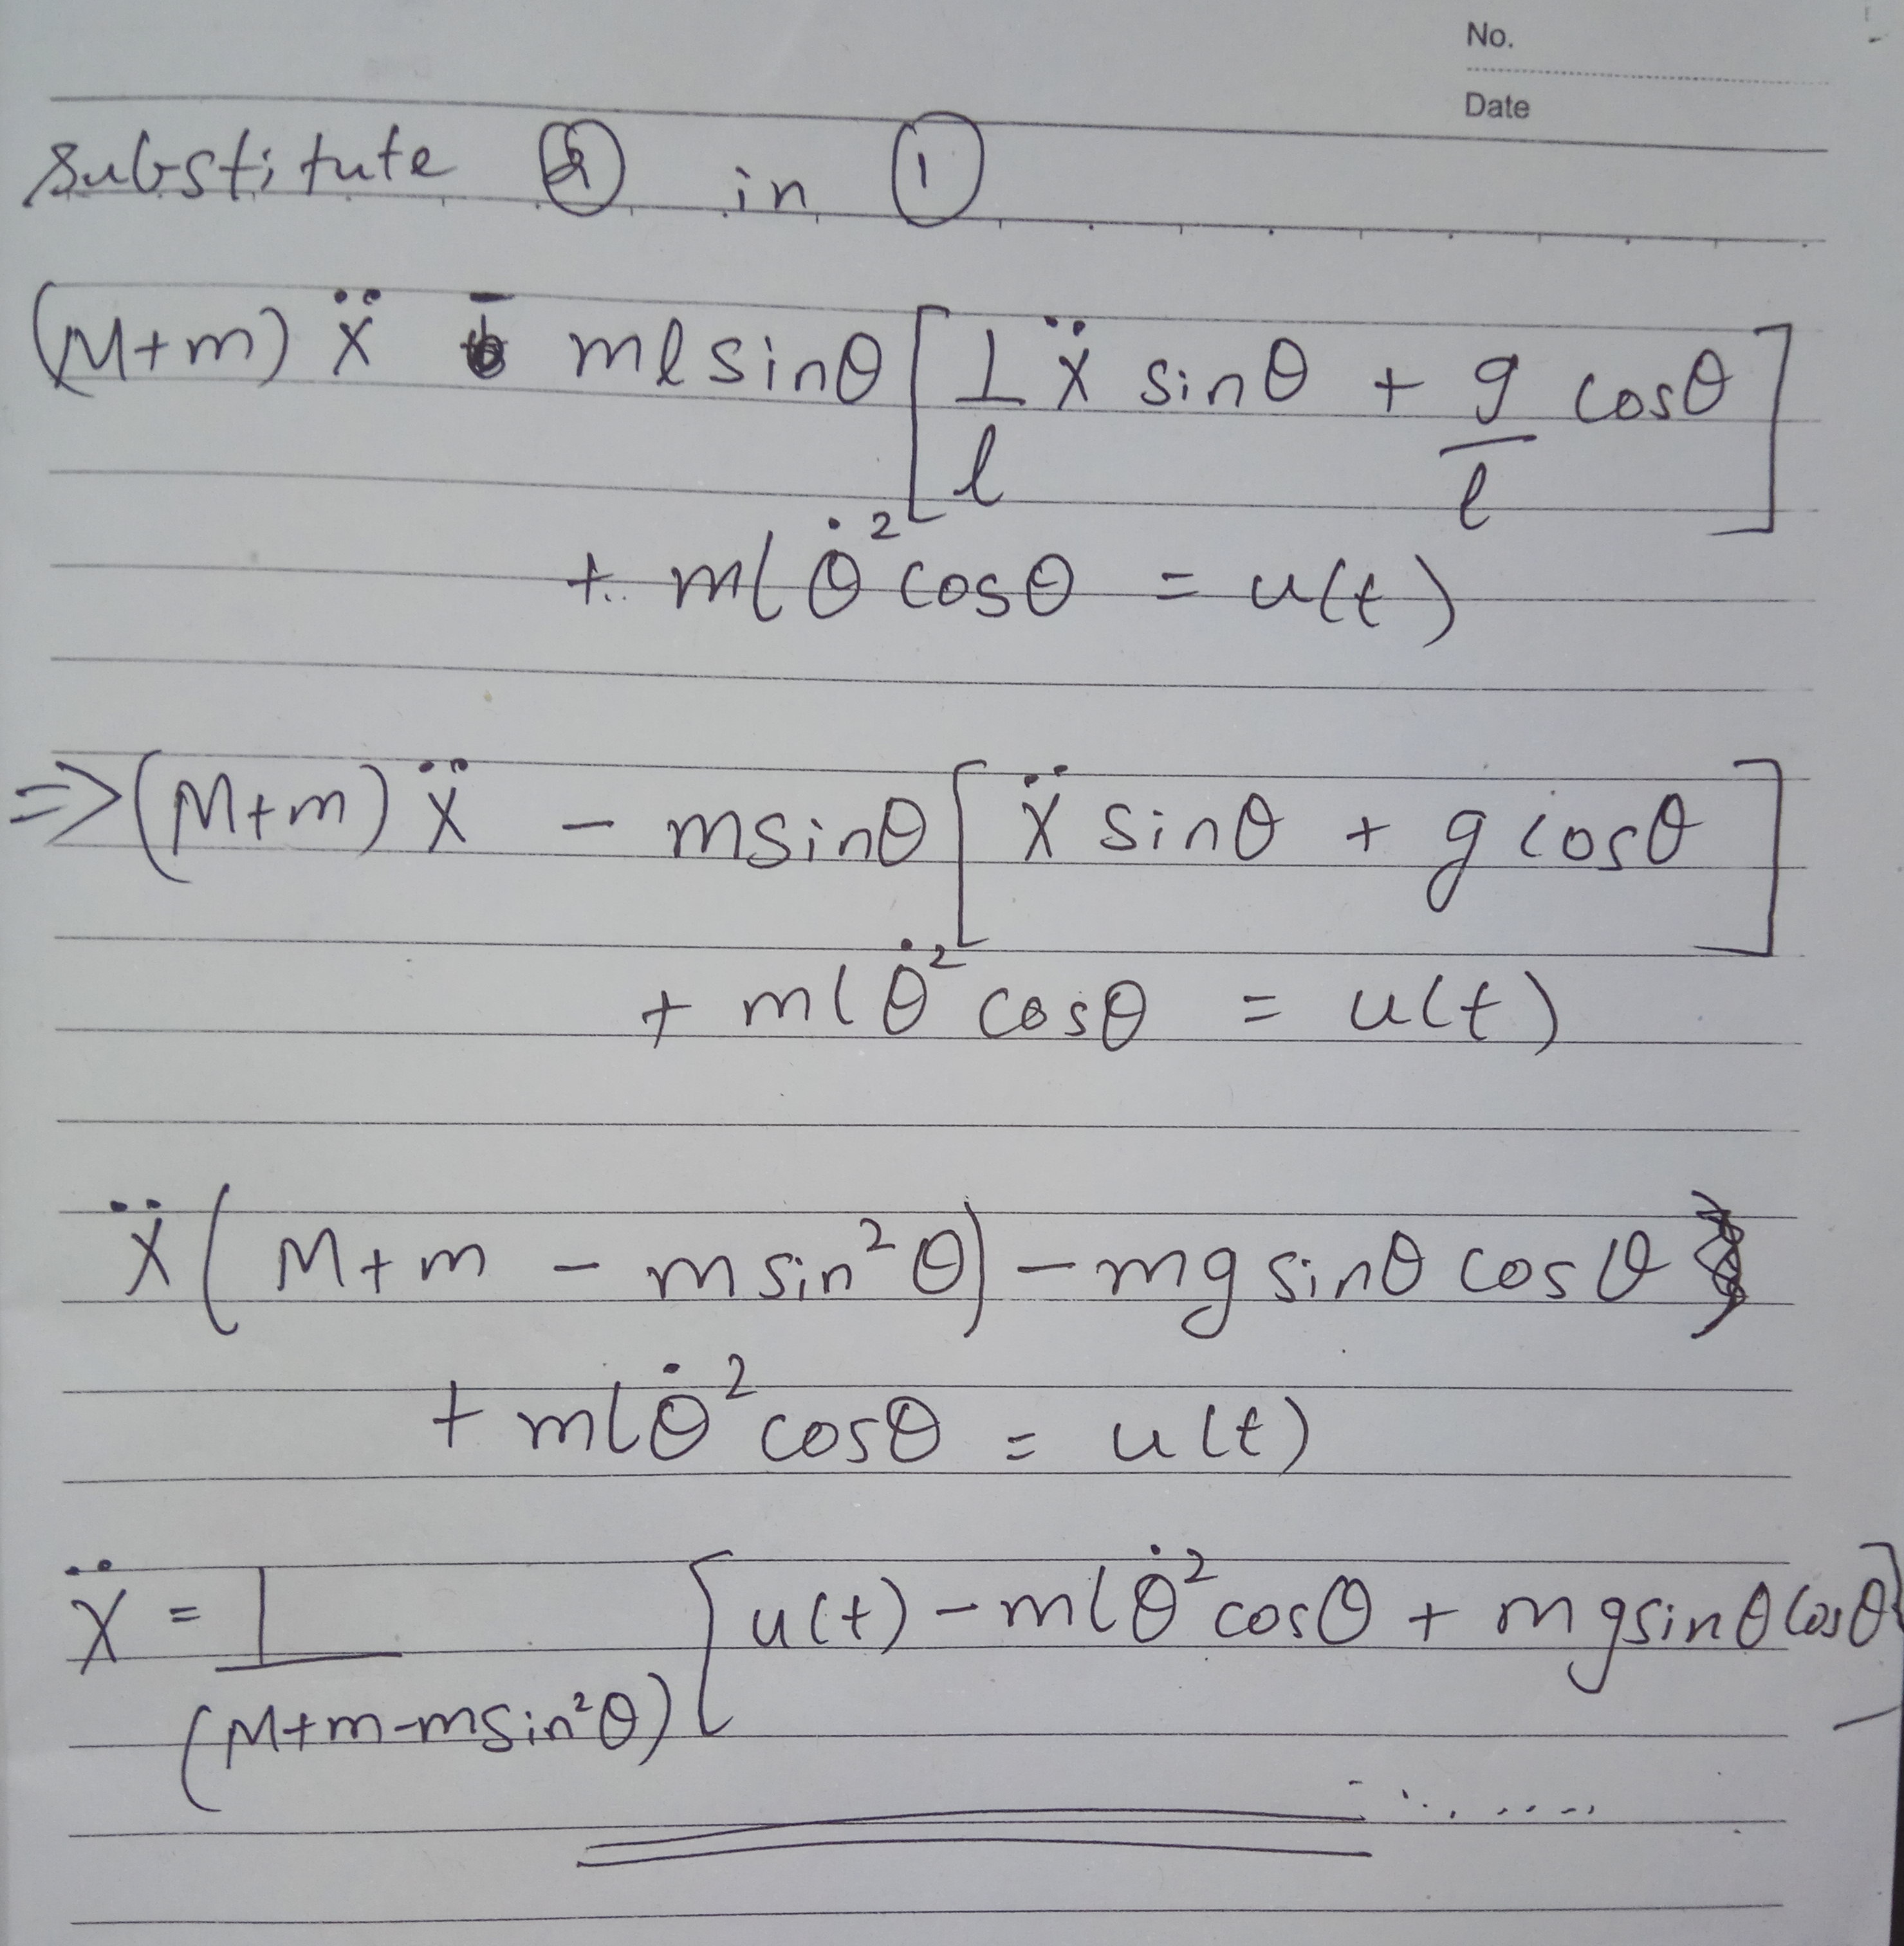 No.
Date
substitute ② in ①
(M+m) ẍ - ml sinθ [ 1/l ẍ sinθ + g/l cosθ ]
+ ml θ̇² cosθ = u(t)
=> (M+m) ẍ - m sinθ [ ẍ sinθ + g cosθ ]
+ ml θ̇² cosθ = u(t)
ẍ ( M+m - m sin²θ ) - mg sinθ cosθ
+ ml θ̇² cosθ = u(t)
ẍ = 1/(M+m-m sin²θ) [ u(t) - ml θ̇² cosθ + mg sinθ cosθ ]